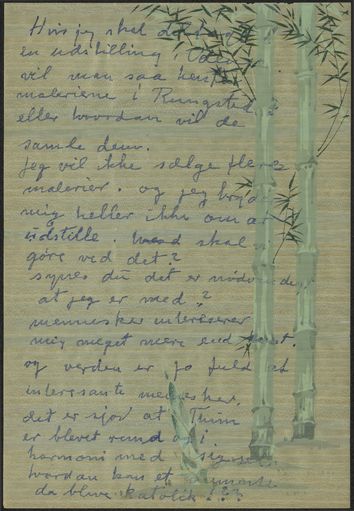 Hvis jeg skal deltage
en udstilling,
vil man saa hente
malerierne i Rungsted?
eller hvordan vil de
samle dem.
Jeg vil ikke sælge flere
malerier. og jeg bryder
mig heller ikke om at
udstille. hvad skal vi
göre ved det?
synes du det er nödvendigt
at jeg er med?
mennesker interesserer
mig meget mere end kunst.
og verden er jo fuld af
interesante mennesker,
det er sjov at
er blevet rund i
harmoni med sig selv
hvordan kan et
da blive katolik???